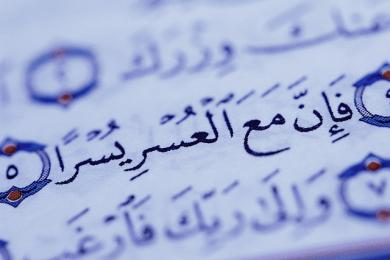 عَنكَ وِزْرَكَ
فَإِنَّ مَعَ ٱلْعُسْرِ يُسْرًا ٥
٧ وَإِلَىٰ رَبِّكَ فَٱرْغَب